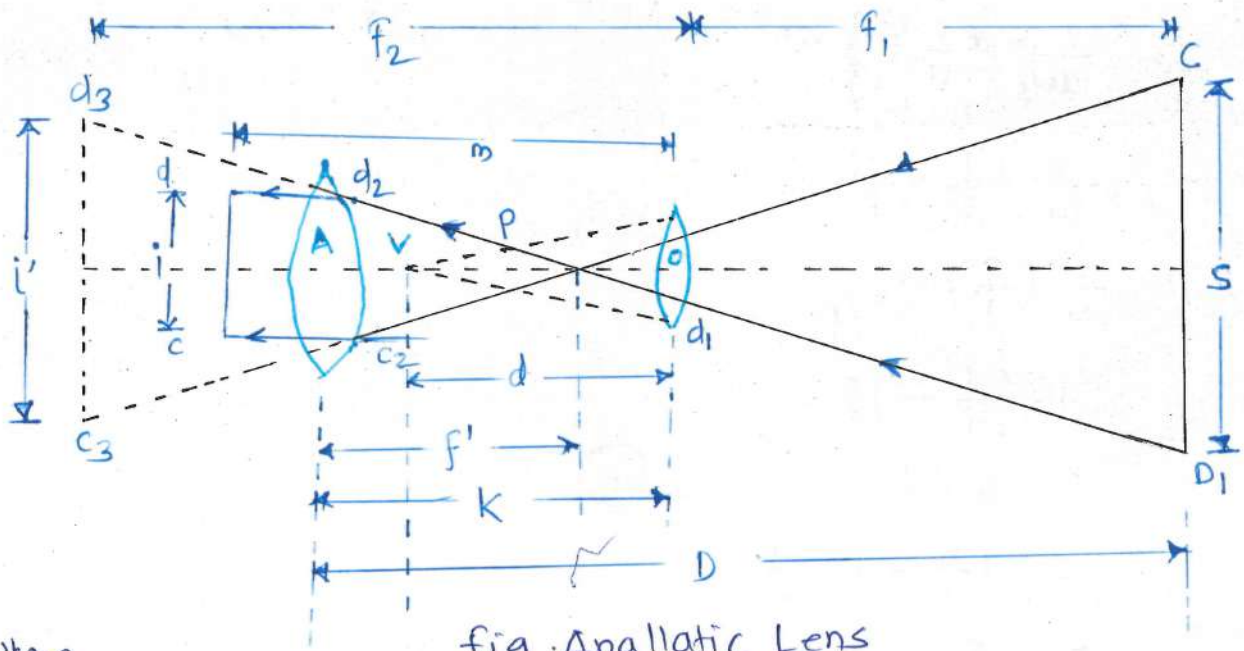 f2 f1
C
d3
m
d d2
P
A V O
i' i S
c c2 d1
d
c3 f'
D1
K
D
fig. Anallatic Lens